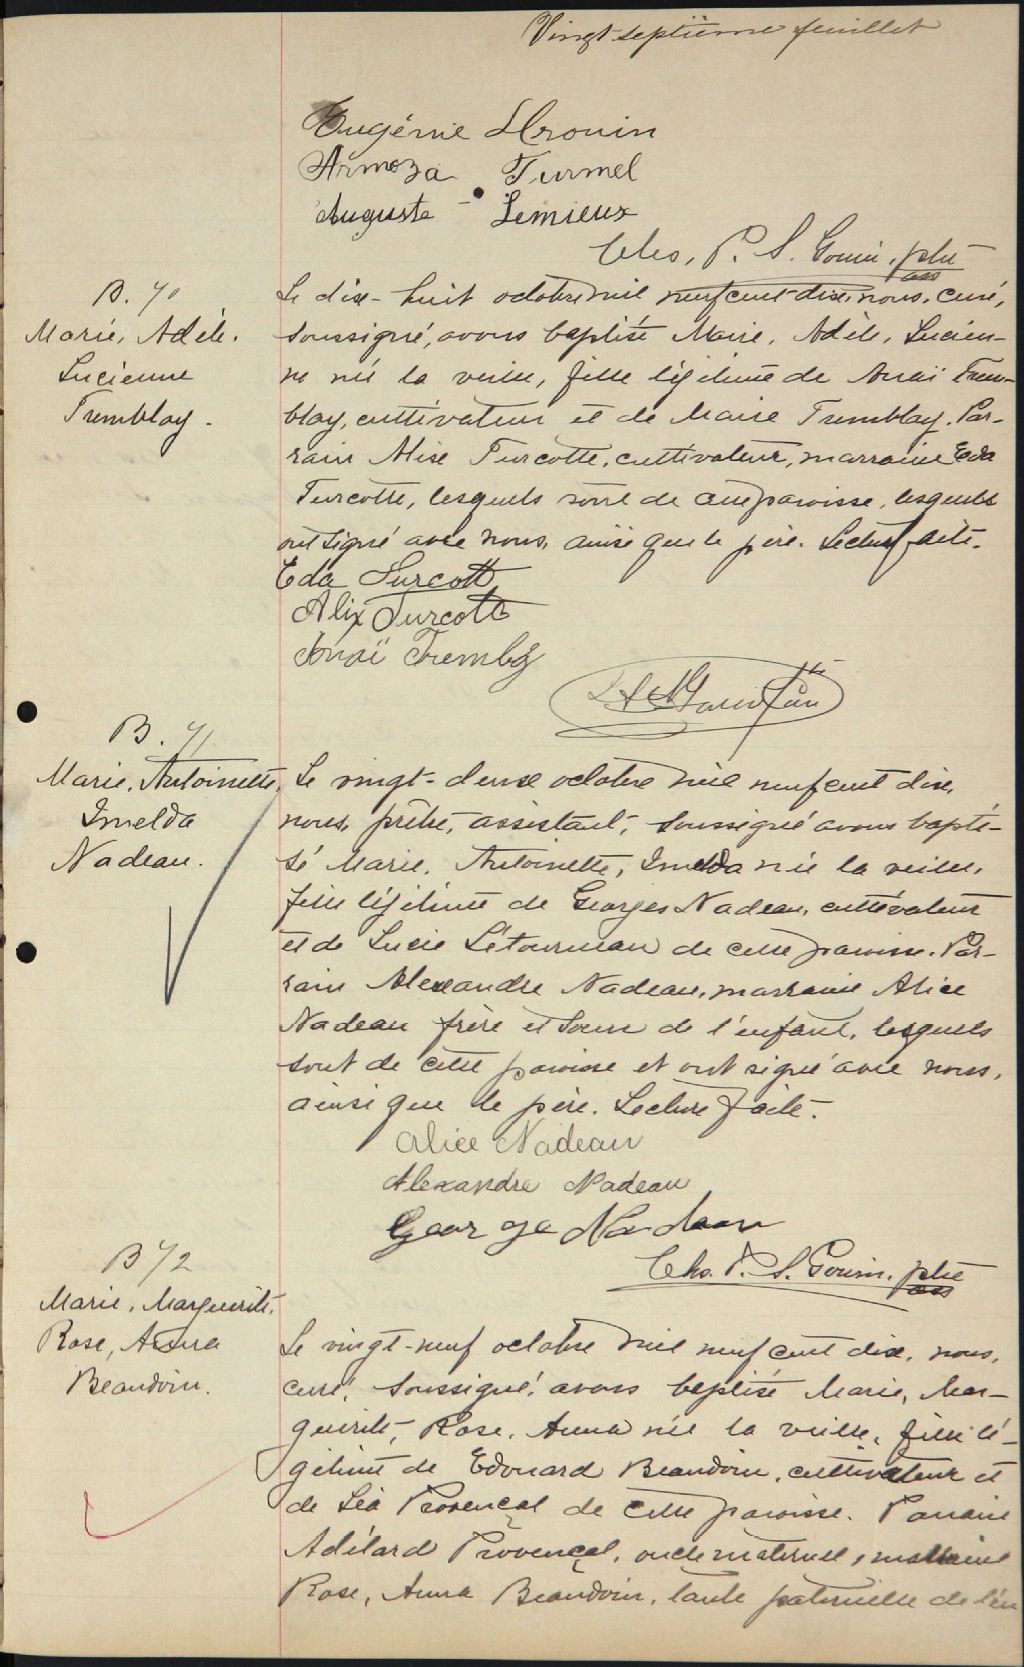 Vingt septième feuillet
Eugénie Drouin
Armoza Turmel
Auguste Lemieux
Chs. P. S. Gouin, ptre
ass
B. 70
Marie, Adèle.
Lucienne
Tremblay.
Le dix-huit octobre mil neuf cent dix, nous, curé,
soussigné, avons baptisé Marie, Adèle, Lucien-
ne née la veille, fille légitime de Anaï Trem-
blay, cultivateur et de Marie Tremblay. Par-
rain Alix Turcotte, cultivateur, marraine Eda
Turcotte, lesquels sont de cette paroisse, lesquels
ont signé avec nous, ainsi que le père. Lecture faite.
Eda Turcott
Alix Turcott
Anaï Tremblay
B. 71
Marie, Antoinette,
Imelda
Nadeau.
Le vingt-deux octobre mil neuf cent dix,
nous, prêtre, assistant, soussigné avons bapti-
sé Marie, Antoinette, Imelda née la veille,
fille légitime de Georges Nadeau, cultivateur
et de Lucie Létourneau de cette paroisse. Par-
rain Alexandre Nadeau, marraine Alice
Nadeau frère et soeur de l'enfant, lesquels
sont de cette paroisse et ont signé avec nous,
ainsi que le père. Lecture faite.
Alice Nadeau
Alexandre Nadeau
George Nadeau
Chs. P. S. Gouin, ptre
ass
B 72
Marie, Marguerite,
Rose, Anna
Beaudoin.
Le vingt-neuf octobre mil neuf cent dix, nous,
curé, soussigné, avons baptisé Marie, Mar-
guerite, Rose, Anna née la veille, fille lé-
gitime de Edouard Beaudoin, cultivateur et
de Léa Provençal de cette paroisse. Parrain
Adélard Provençal, oncle maternel, marraine
Rose, Anna Beaudoin, tante paternelle de l'en